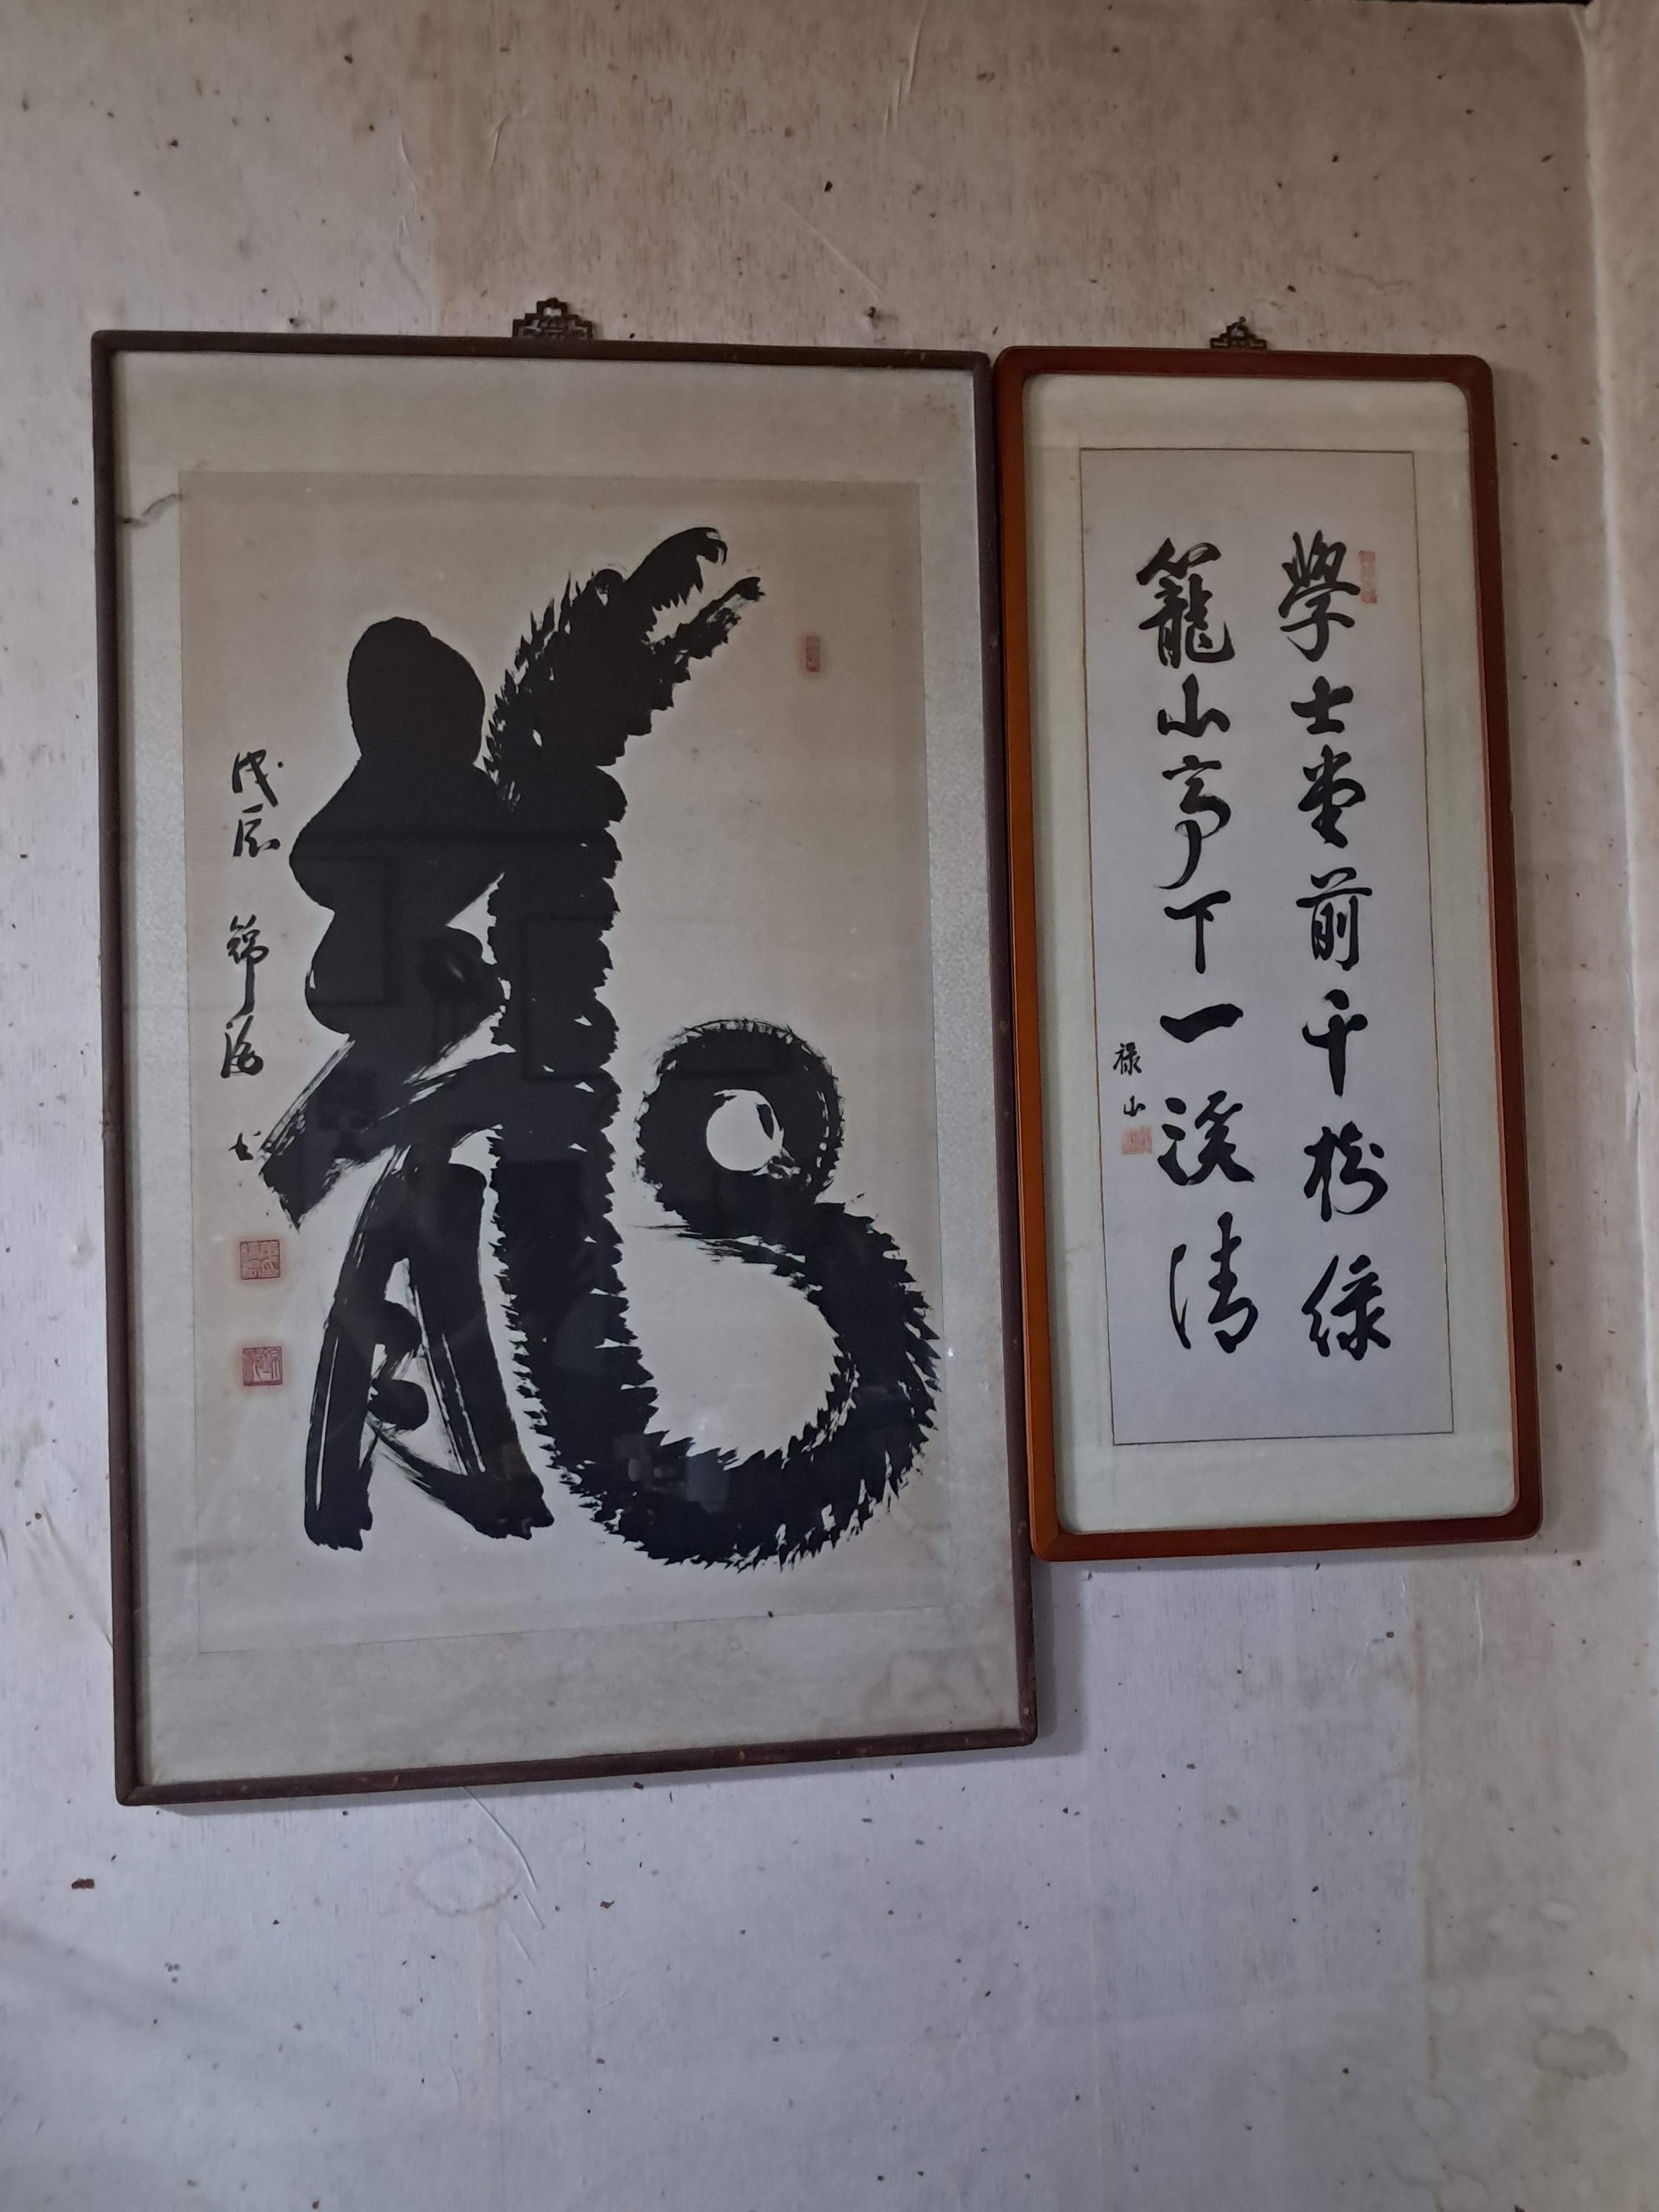 學士堂前千樹綠
籠山亭下一溪清
祿山
龍
戊辰 錦洛 書